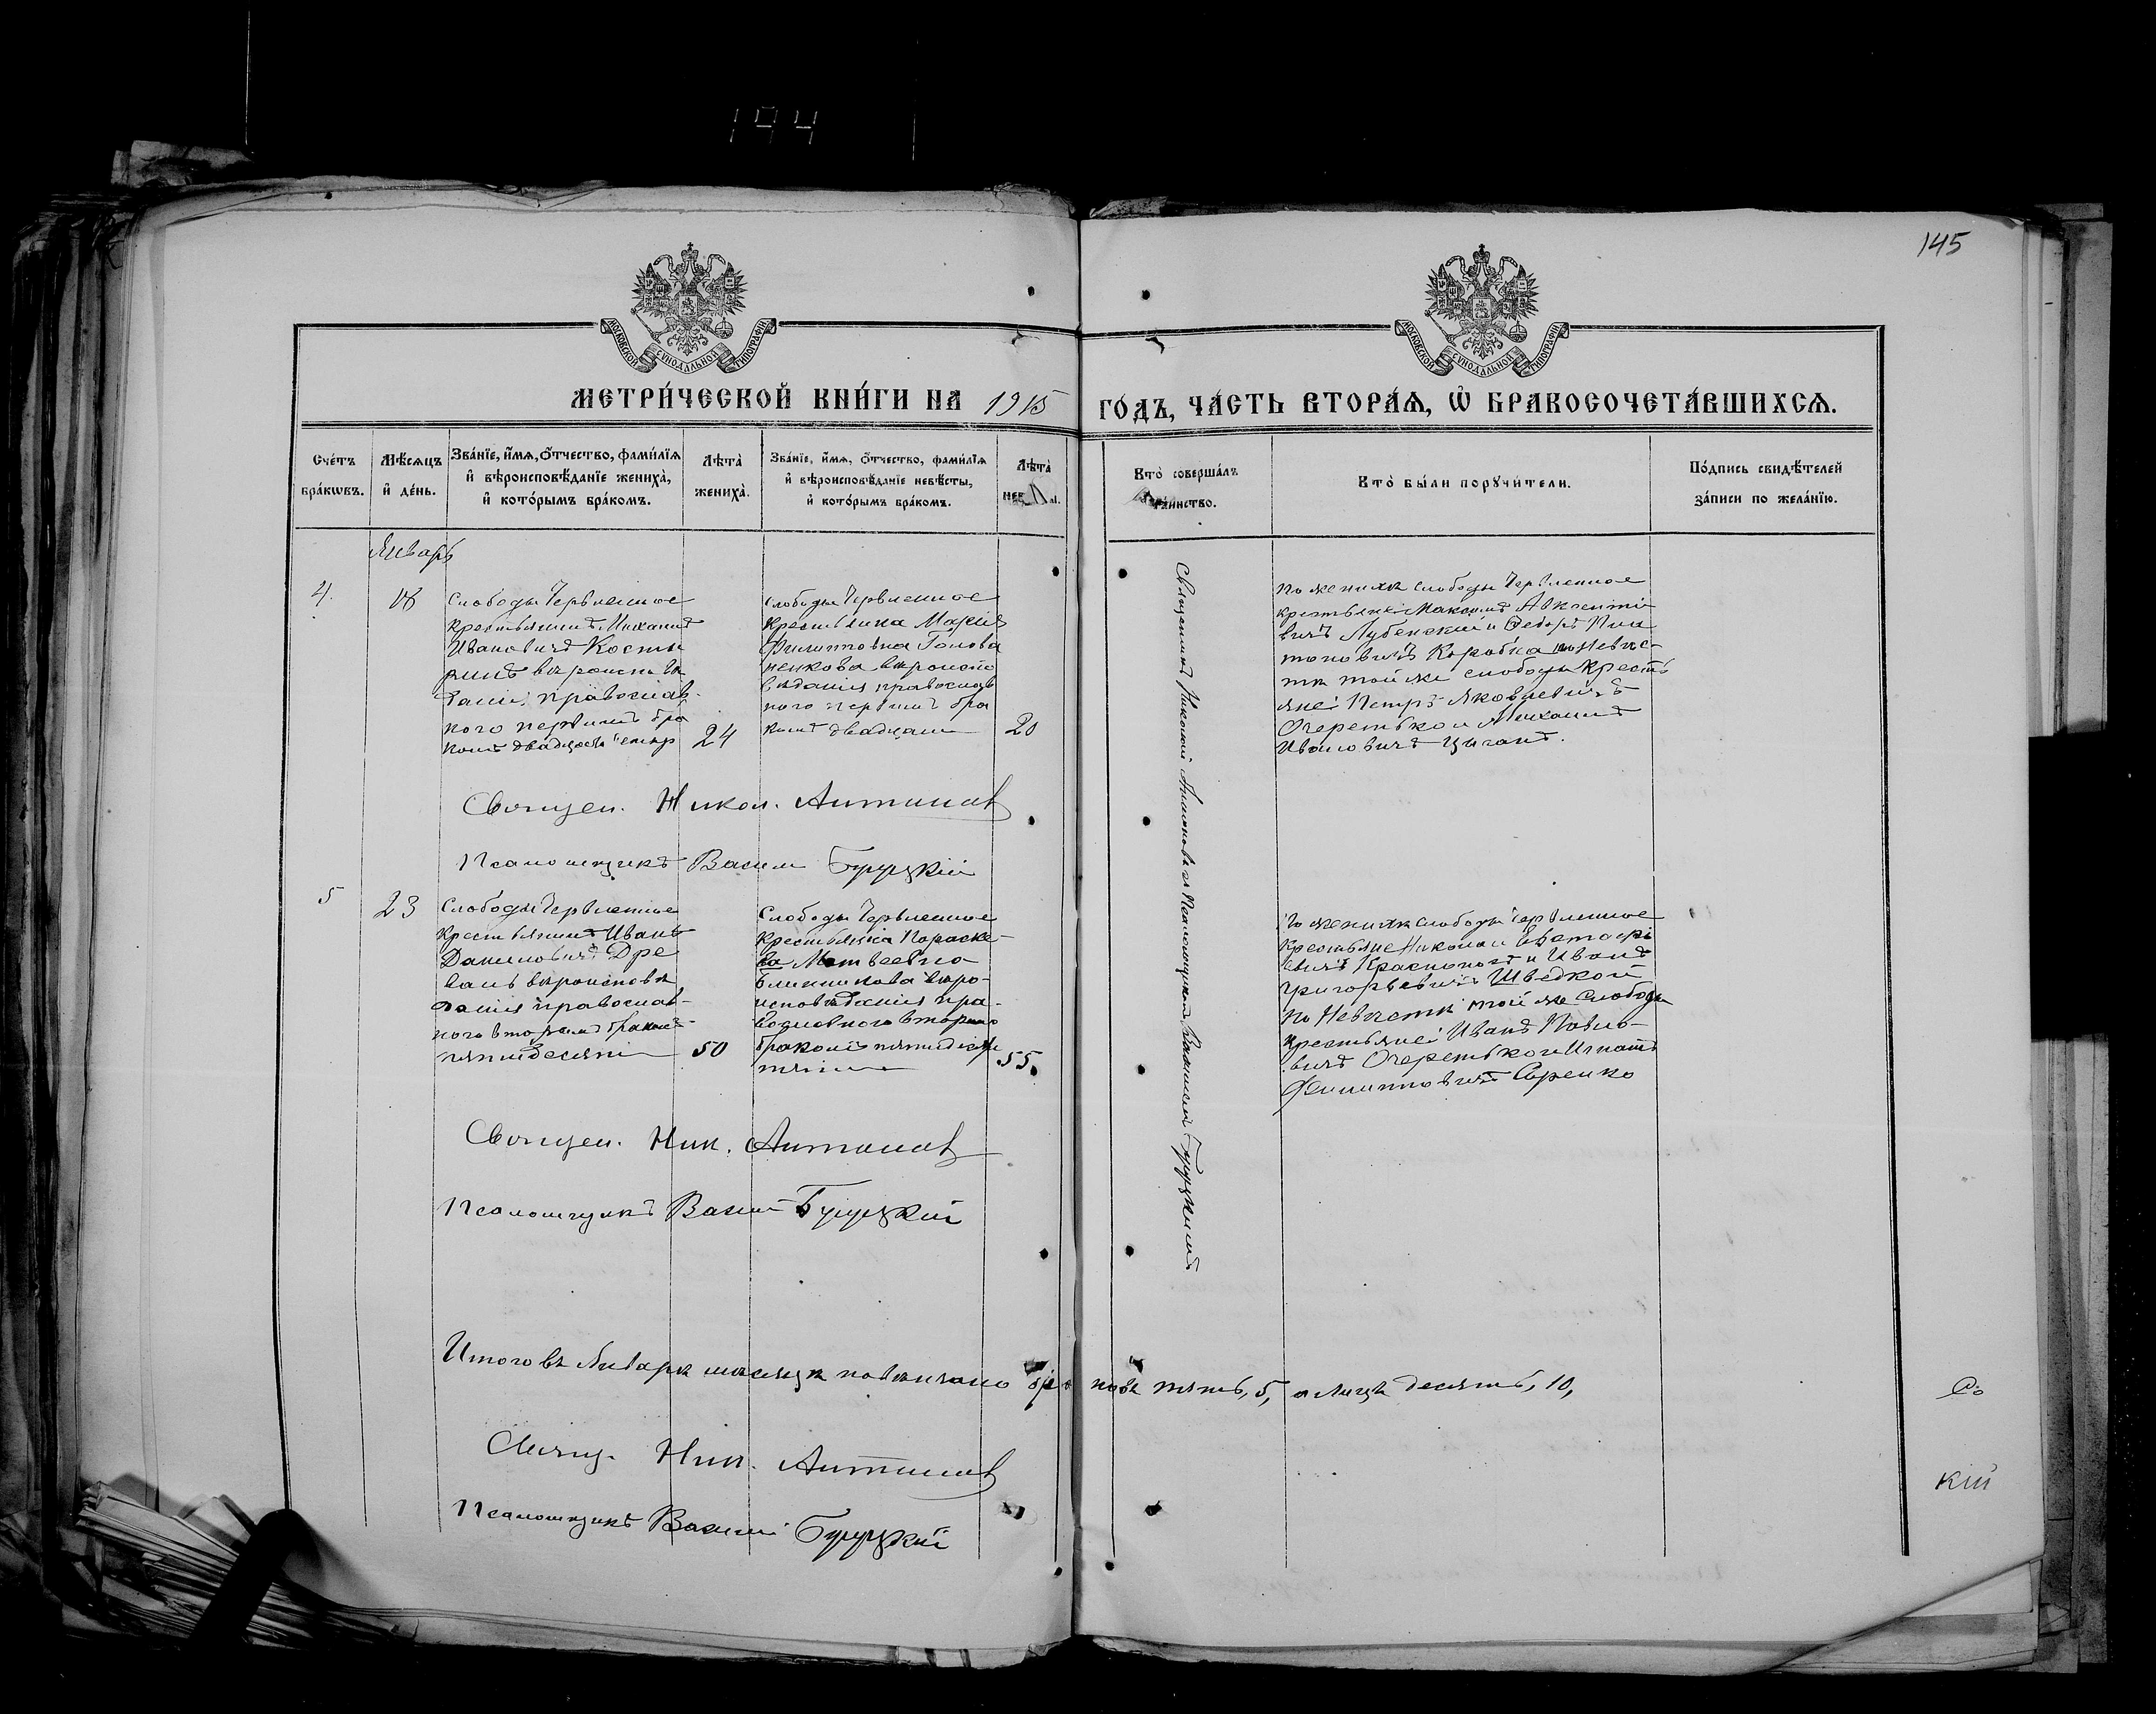 194
145
МОСКОВСКОЙ СѴНОДАЛЬНОЙ ТИПОГРАФІИ
МОСКОВСКОЙ СѴНОДАЛЬНОЙ ТИПОГРАФІИ
МЕТРИ́ЧЕСКОЙ КНИ́ГИ НА 1915 ГО́ДЪ, ЧА́СТЬ ВТОРА́Ѧ, Ѡ҆ БРАКОСОЧЕТА́ВШИХСѦ.
Сче́тъ бра́кѡвъ.
Мѣ́сѧцъ и҆ де́нь.
Зва́нїе, и҆́мѧ, ѻ҆́тчество, фами́лїѧ
и҆ вѣроисповѣ́данїе жениха̀,
и҆ кото́рымъ бра́комъ.
Лѣта̀ жениха̀.
Зва́нїе, и҆́мѧ, ѻ҆́тчество, фами́лїѧ
и҆ вѣроисповѣ́данїе невѣ́сты,
и҆ кото́рымъ бра́комъ.
Лѣта̀
Кто̀ соверша́лъ
та́инство.
Кто̀ бы́ли порꙋчи́тели.
По́дпись свидѣ́телей
за́писи по жела́нїю.
Январь
4.
18
Слободы Червленное
крестьянинъ Михаилъ
Ивановичъ Косты
ринъ вѣроисповѣ
данія православ-
ного первымъ бра
комъ двадцать четыр
24
Слободы Червленное
крестьянка Марія
Филипповна Голова
ненкова вѣроиспо
вѣданія православ
ного первымъ бра
комъ двадцати
20
Священникъ Николай Антоновъ и Псаломщикъ Василій Буруцкій
По женихѣ слободы Червленное
крестьяне Максимъ Авксенті
вичъ Лубенскій и Федоръ Пла
тоновичъ Коробка по невѣс-
тѣ той же слободы кресть
яне Петръ Яковлевичъ
Очеретько и Михаилъ
Ивановичъ Цыганъ.
Священ. Никол. Антонов
Псаломщикъ Васили Буруцкій
5
23
Слободы Червленное
крестьянинъ Иванъ
Даниловичъ Дре
валь вѣроисповѣ
данія православ-
ного вторымъ браком
пятидесяти
50
Слободы Червленное
крестьянка Параске-
ва Матвеевна
Блинникова вѣро-
исповѣданія пра-
вославного вторымъ
бракомъ пятидесяти
пяти
55.
По женихѣ слободы Червленное
крестьяне Николай Евстафі
евичъ Красноногъ и Иванъ
Григорьевичъ Шведкой
По Невѣстѣ той же Слободы
крестьяне Иванъ Павло-
вичъ Очеретько и Игнатъ
Филипповичъ Саренко
Священ. Ник. Антонов
Псаломщикъ Васили Буруцкій
Итого въ Январѣ мѣсяцѣ повѣнчано браковъ пять, 5, а лицъ десять, 10,
Свящ. Ник. Антонов
Псаломщикъ Василій Буруцкій
кій